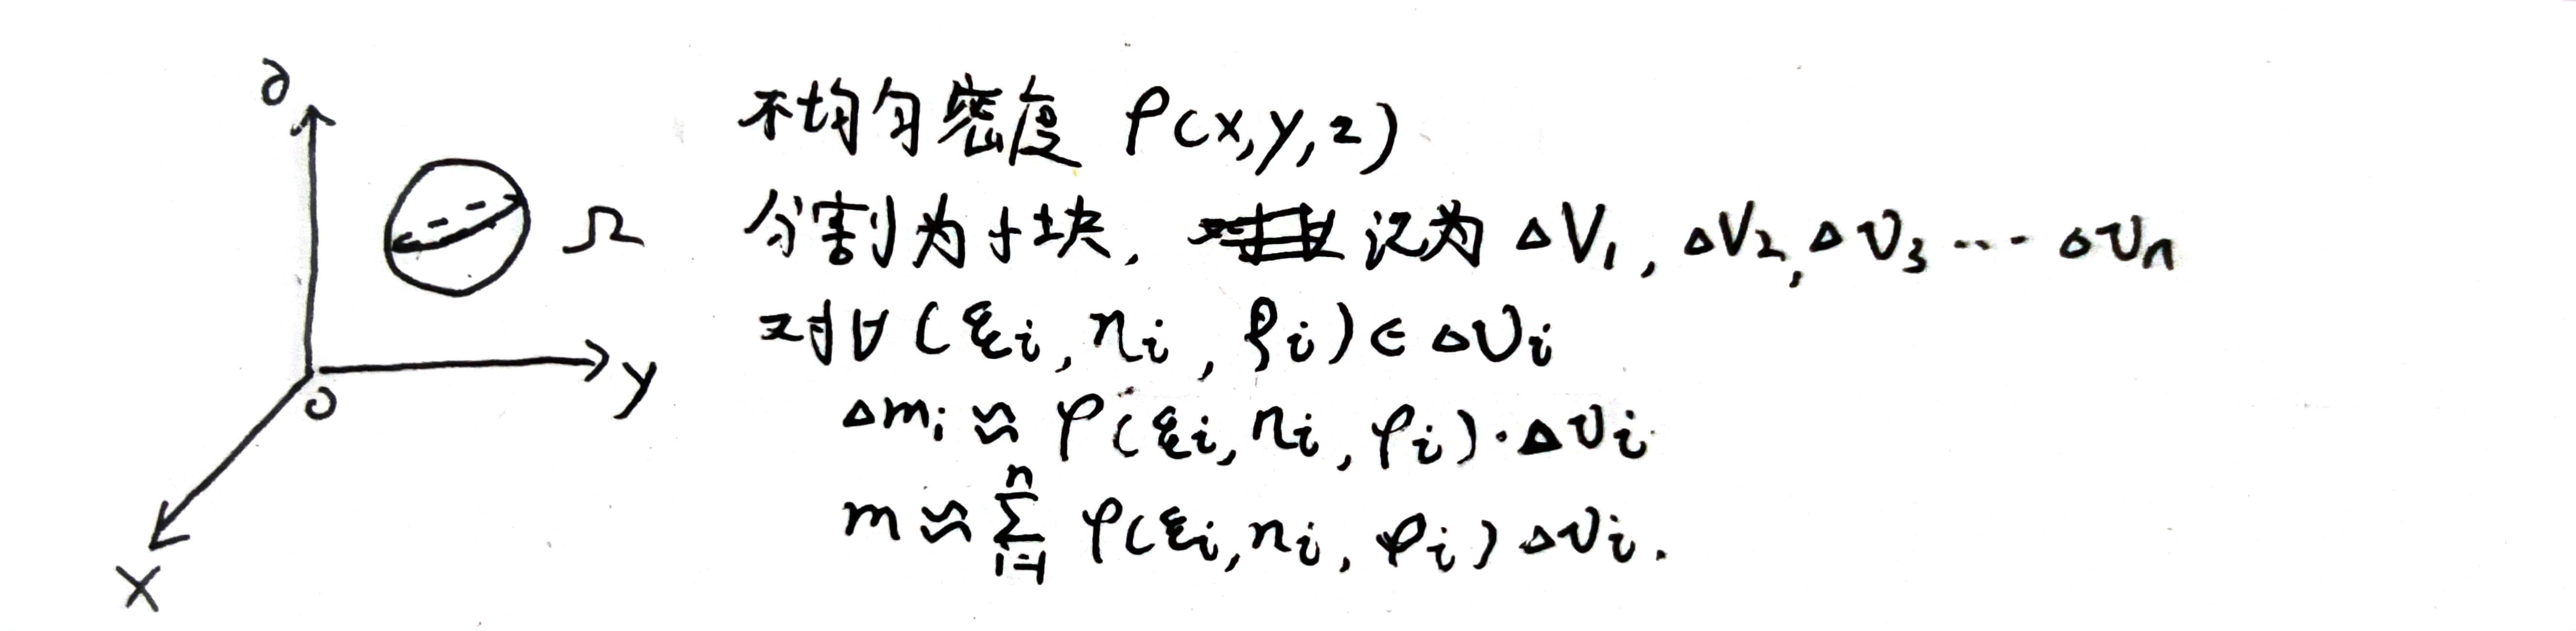 z
y
O
x
Ω
不均匀密度 ρ(x,y,z)
分割为小块, 记为 ΔV₁, ΔV₂, ΔV₃ ... ΔVn
对∀(ξi, ηi, ζi) ∈ ΔVi
Δmi ≈ ρ(ξi, ηi, ζi)·ΔVi
m ≈ ∑ᵢ₌₁ⁿ ρ(ξi, ηi, ζi) ΔVi.